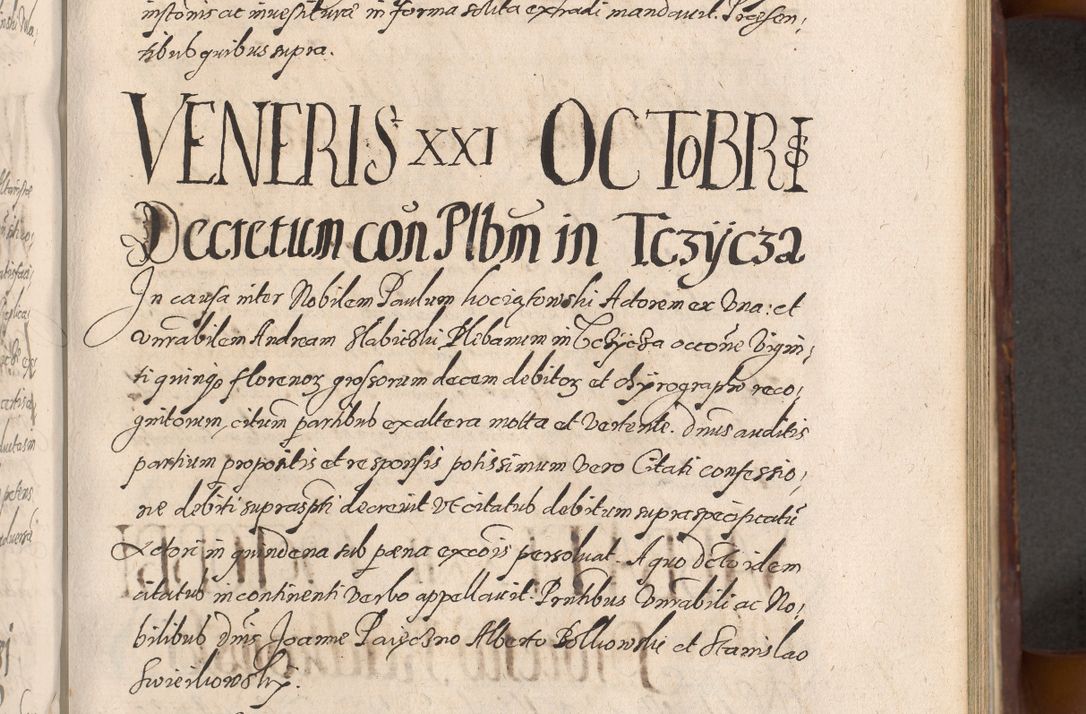 instonis ac inuestituræ in forma solita extradi mandauit. Præsen,
tibus quibus supra.
VENERIS XXI OCTOBRIS
Decretum con Plbm in Tczÿcza
In causa inter Nobilem Paulum Actorem ex Vna: et
vnrabilem Andream Slabicski Plebanum in Tczÿcza occone Vigin,
ti quinqȝ florenoȝ grossorum decem debitoȝ et chÿrographo reco,
gnitorum, citum partibus ex altera mota et Vertente. Dnus auditis
partium propositis et responsis potissimum vero Citati confessio,
ne debiti suprascpti decreuit vt citatus debitum supraspecificatu
Actori in quindena sub pæna excois persoluat. A quo dcto idem
citatus incontinenti verbo appellauit. Prntibus Vnrabili ac No,
bilibus dnis Joanne Paiȩczno Alberto Bolkowski et Stanislao
Swieikowskj.